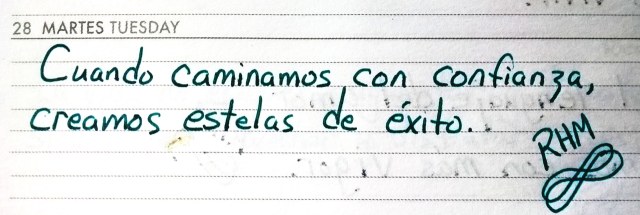 28 MARTES TUESDAY
Cuando caminamos con confianza,
creamos estelas de éxito..
RHM